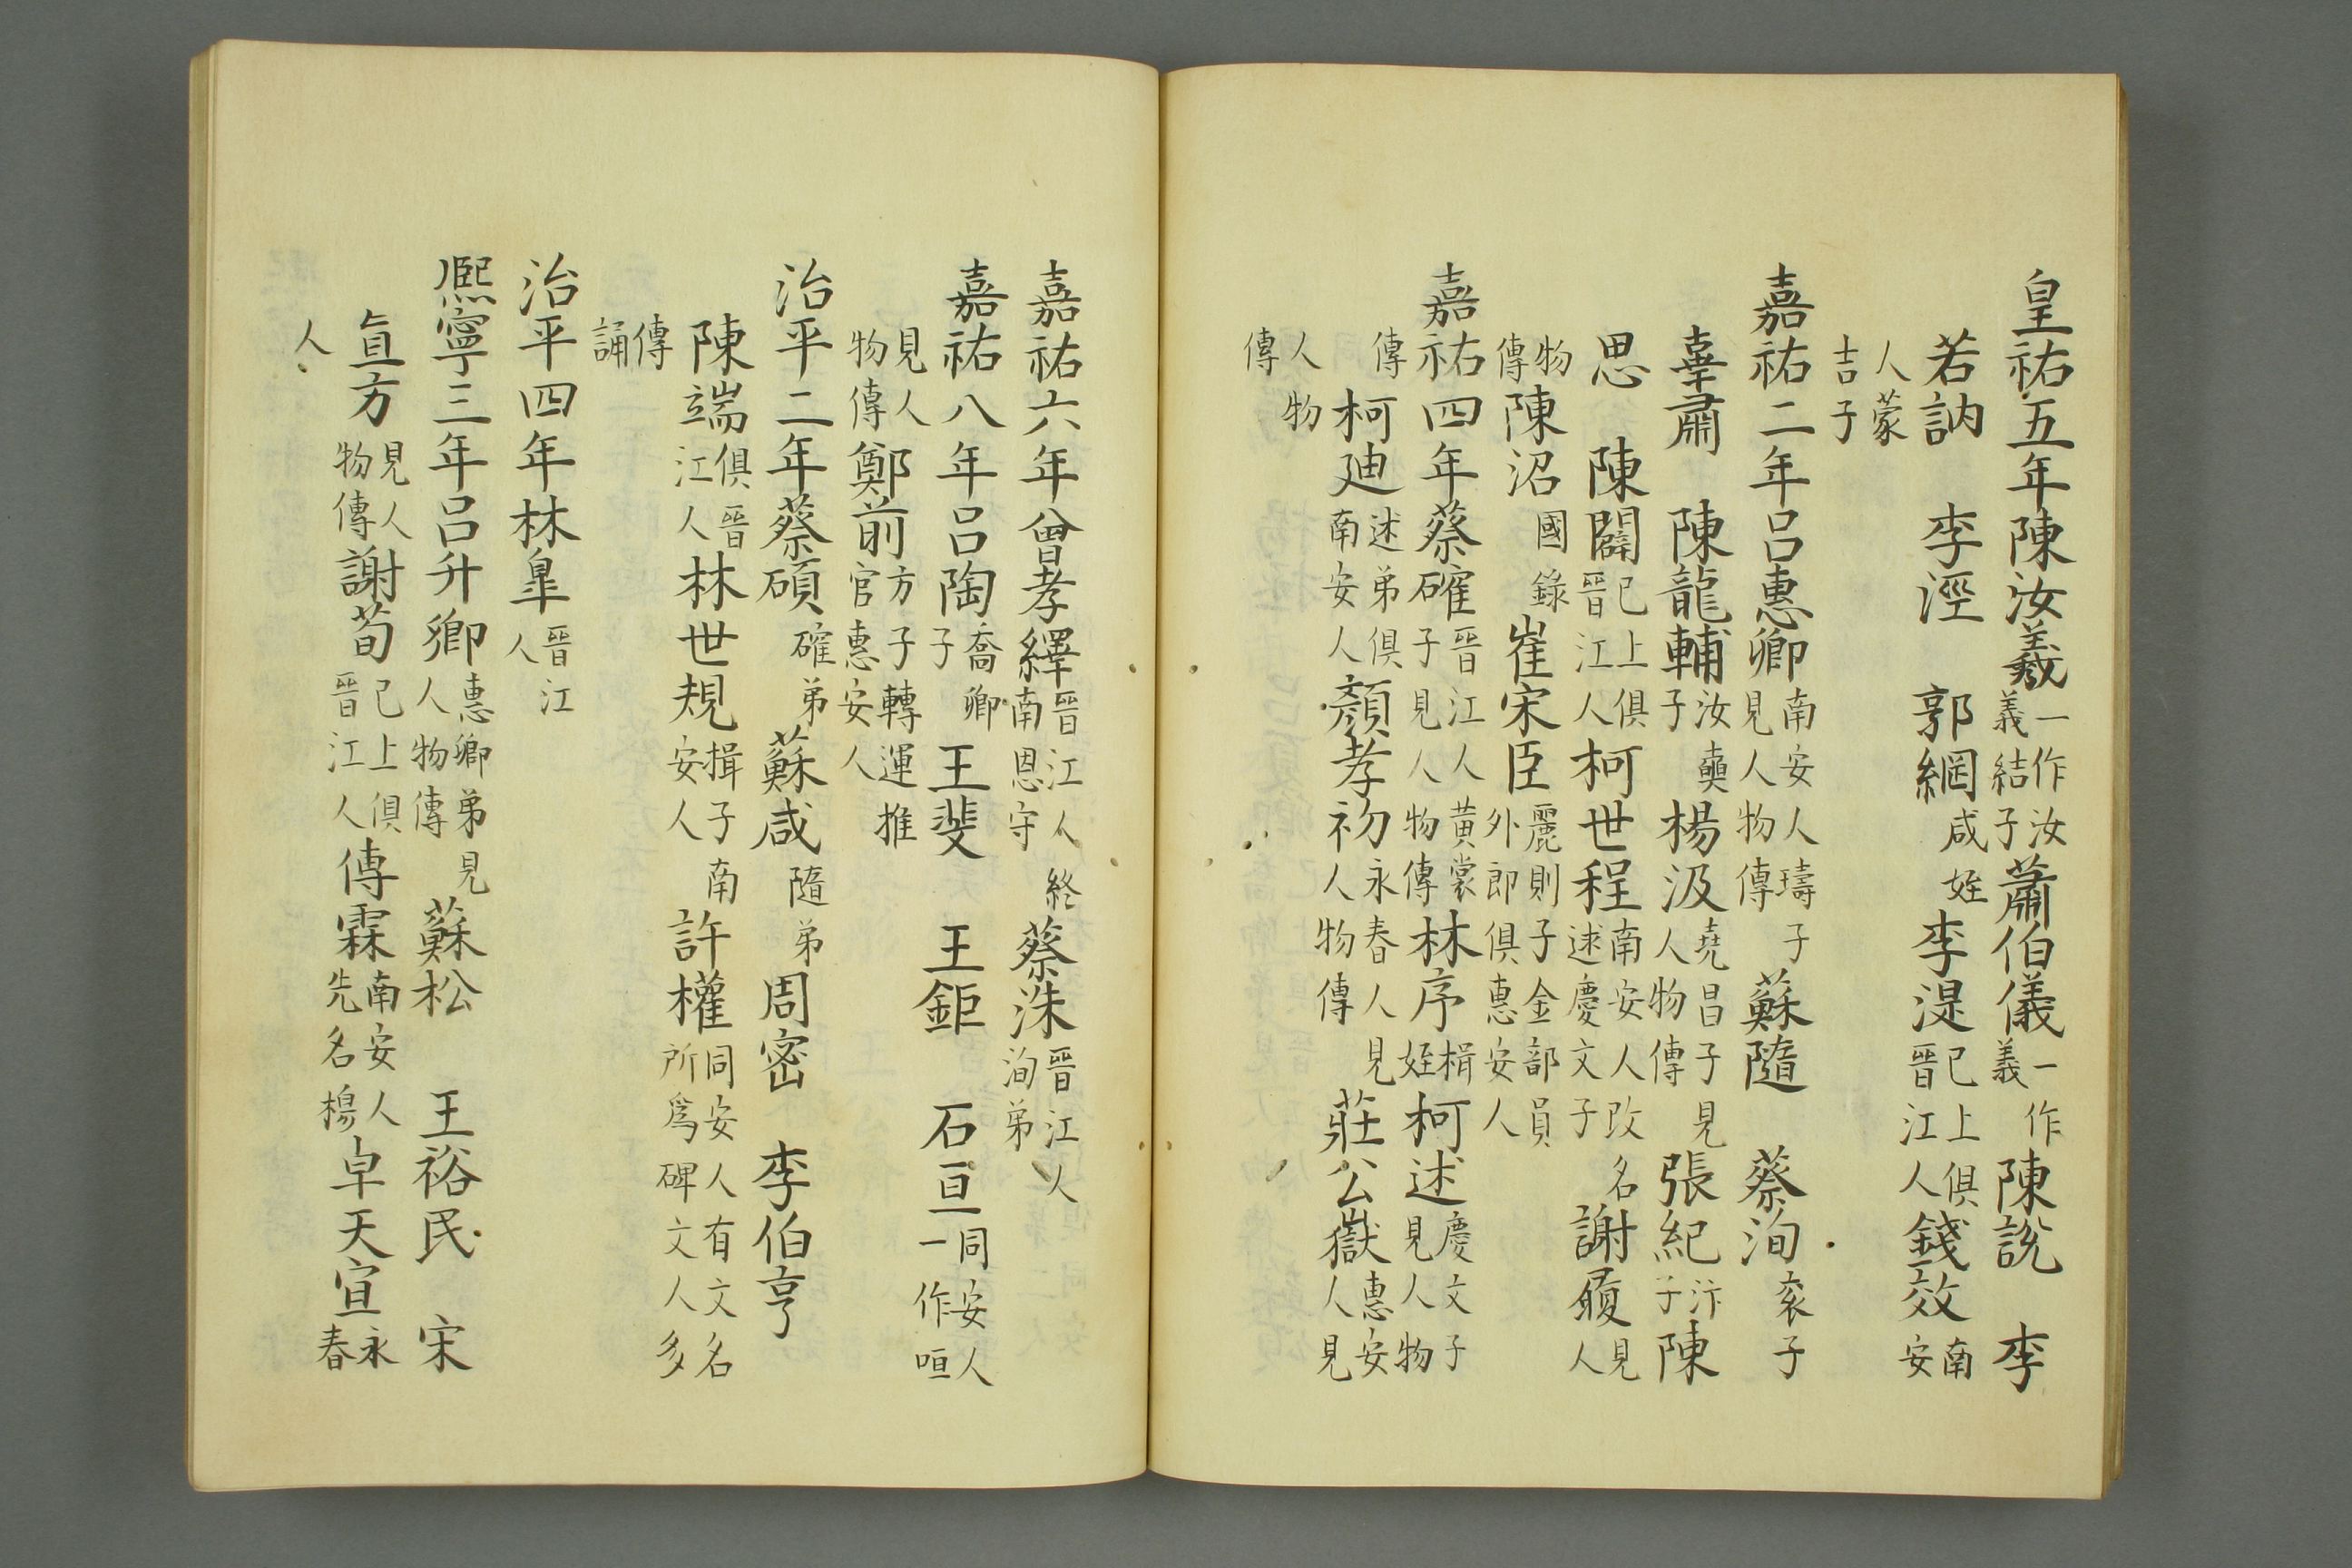 皇祐五年陳汝羲一作汝義結子蕭伯儀一作義陳説 李
若訥 李涇 郭綱咸姪李湜已上俱晉江人錢效南安
人蒙吉子
嘉祐二年呂惠卿南安人璹子見人物傳蘇隨 蔡洵衮子
辜肅 陳龍輔汝奭子楊汲堯昌子見人物傳張紀汴子陳
思 陳闢已上俱晉江人柯世程南安人改名逑慶文子謝履見人
物傳陳沼國錄崔宋臣麗則子金部員外郎俱惠安人
嘉祐四年蔡確晉江人黃裳子見人物傳林序楫姪柯述慶文子見人物
傳柯廸述弟俱南安人顏孝初永春人見人物傳莊公嶽惠安人見
人物傳
嘉祐六年曾孝繹晉江人終南恩守蔡洙晉江人洵弟
嘉祐八年呂陶喬卿子王斐 王鉅 石亘同安人一作咺
見人物傳鄭前方子轉運推官惠安人
治平二年蔡碩確弟蘇咸隨弟周密 李伯亨
陳端俱晉江人林世規揖子南安人許權同安人有文名所爲碑文人多
傳誦
治平四年林臯晉江人
熈寧三年呂升卿惠卿弟見人物傳蘇松 王裕民 宋
直方見人物傳謝荀已上俱晉江人傳霖南安人先名楊卓天宣永春
人